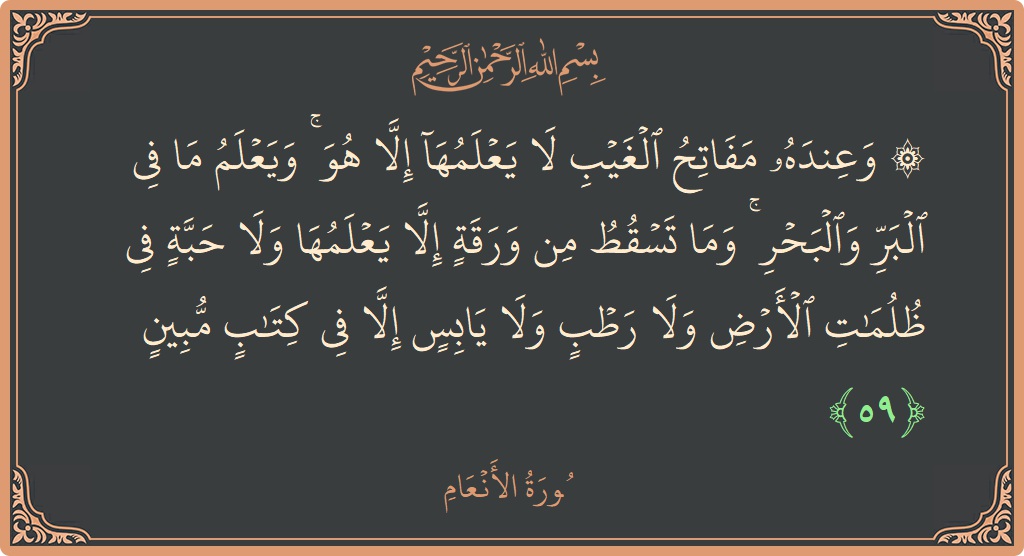 بِسْمِ اللهِ الرَّحْمٰنِ الرَّحِيْمِ
۞ وَعِندَهُۥ مَفَاتِحُ ٱلْغَيْبِ لَا يَعْلَمُهَآ إِلَّا هُوَ ۚ وَيَعْلَمُ مَا فِى
ٱلْبَرِّ وَٱلْبَحْرِ ۚ وَمَا تَسْقُطُ مِن وَرَقَةٍ إِلَّا يَعْلَمُهَا وَلَا حَبَّةٍ فِى
ظُلُمَٰتِ ٱلْأَرْضِ وَلَا رَطْبٍ وَلَا يَابِسٍ إِلَّا فِى كِتَٰبٍ مُّبِينٍ
﴿٥٩﴾
سُورَةُ الأَنْعَامِ